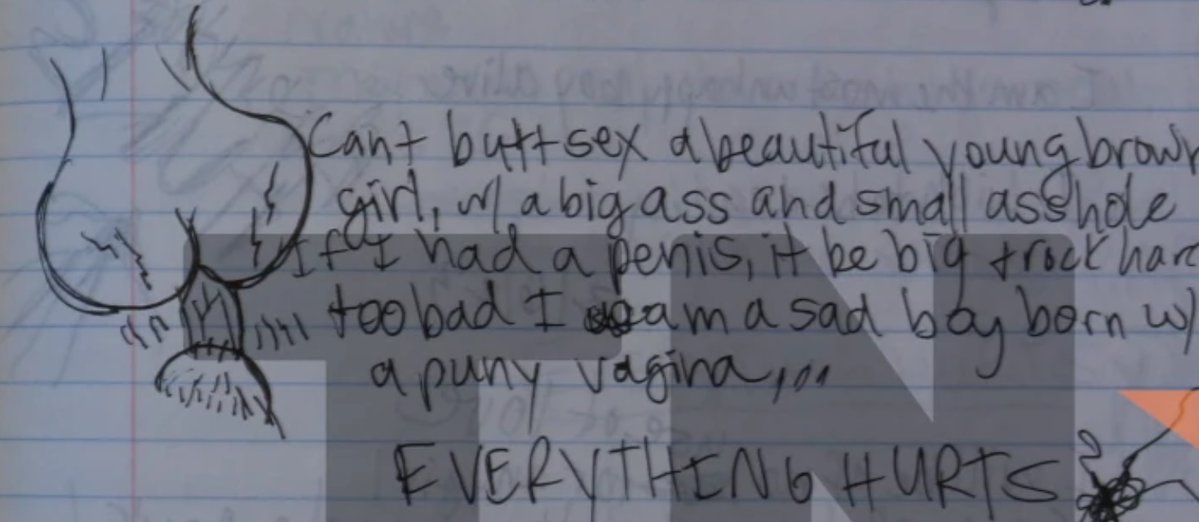 Cant buttsex a beautiful young brown
girl, w/ a big ass and small asshole
If I had a penis, it be big + rock hard
too bad I am a sad boy born w/
a puny vagina,,,
EVERYTHING HURTS
TN